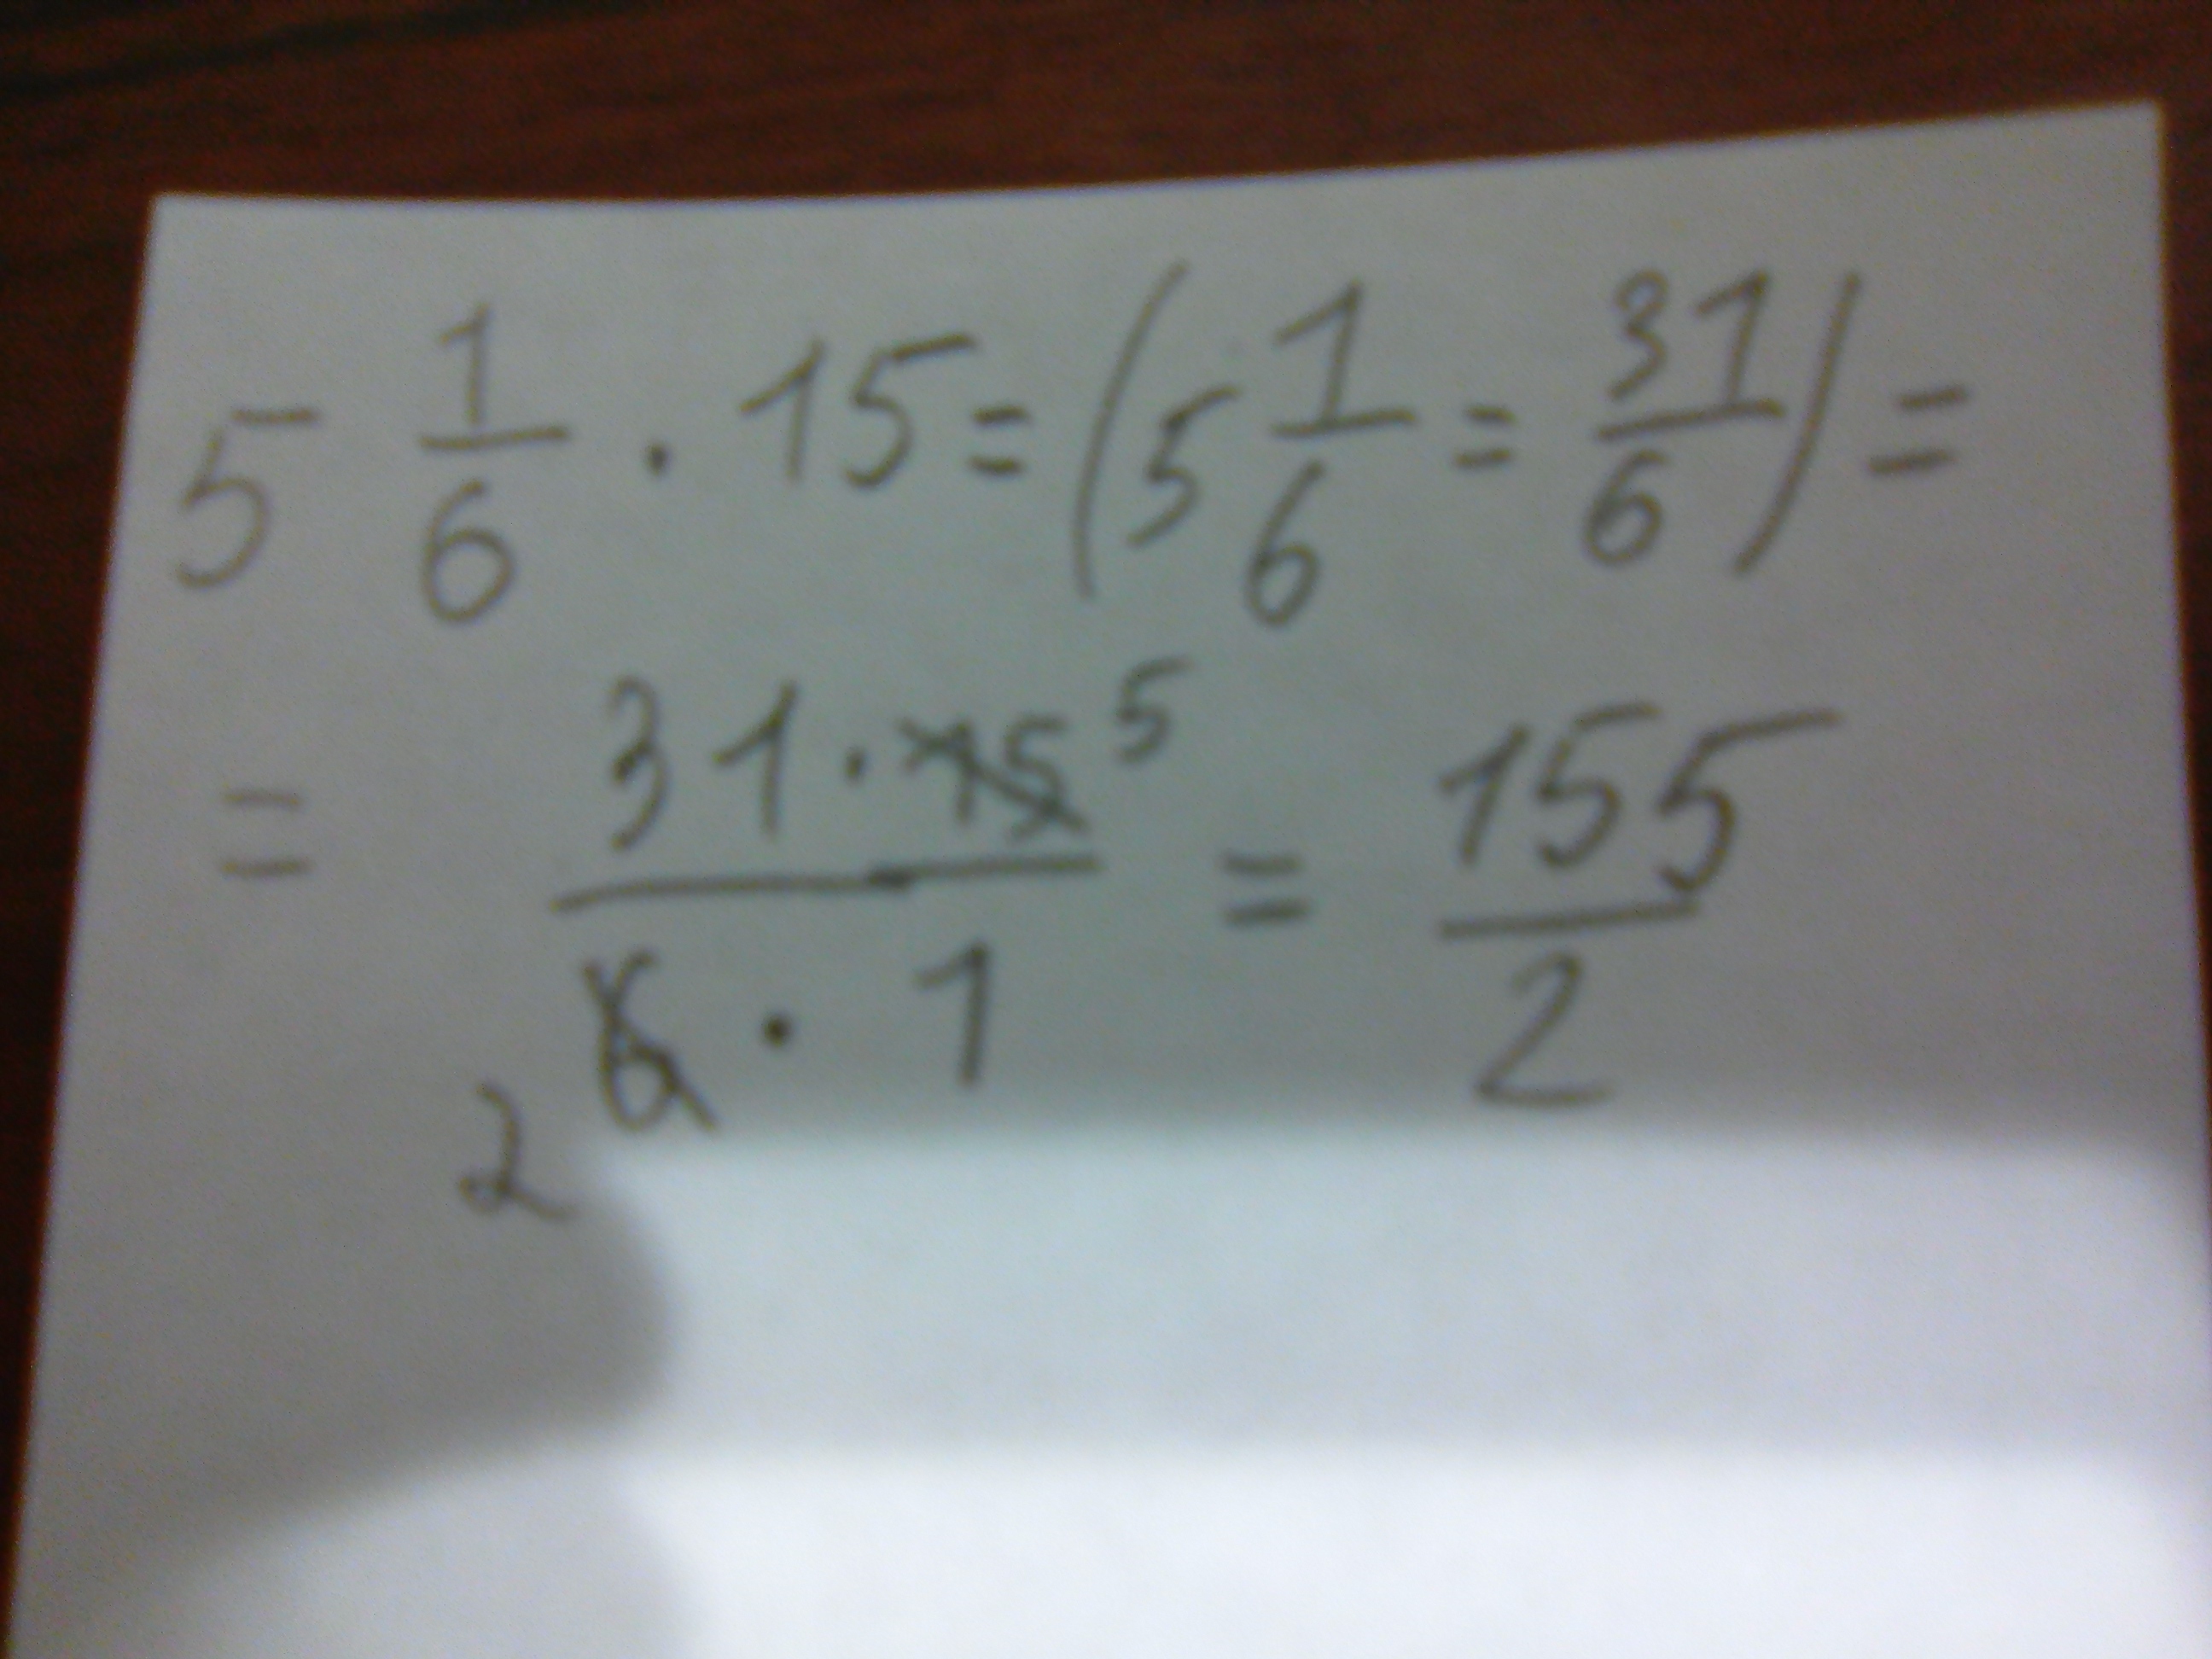 5 1/6 · 15 = (5 1/6 = 31/6) =
= 31 · 15 5 / 2 6 · 1 = 155/2